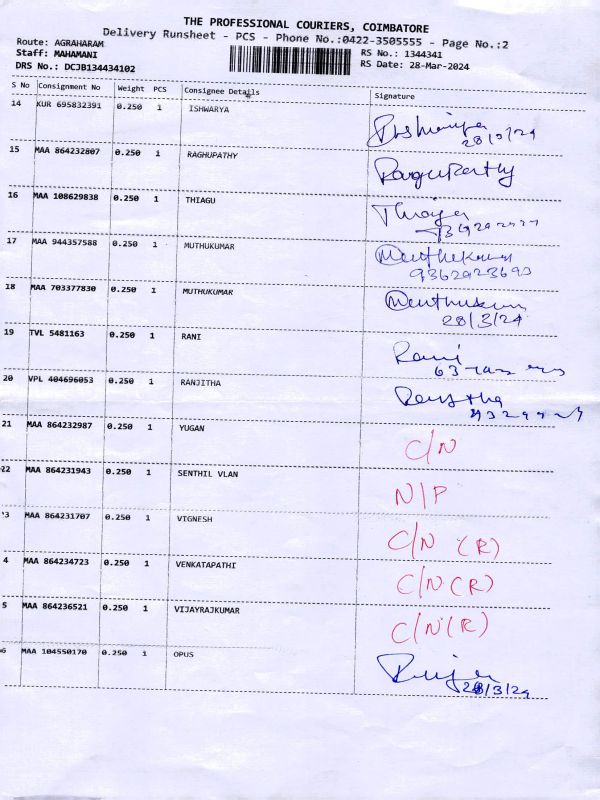 THE PROFESSIONAL COURIERS, COIMBATORE
Delivery Runsheet - PCS - Phone No.:0422-3505555 - Page No.:2
Route: AGRAHARAM
RS No.: 1344341
Staff: MAHAMANI
RS Date: 28-Mar-2024
DRS No.: DCJB134434102
S No Consignment No Weight PCS Consignee Details Signature
14 KUR 695832391 0.250 1 ISHWARYA
15 MAA 864232807 0.250 1 RAGHUPATHY
16 MAA 108629838 0.250 1 THIAGU
17 MAA 944357588 0.250 1 MUTHUKUMAR
9362923693
18 MAA 703377830 0.250 1 MUTHUKUMAR
28/3/24
19 TVL 5481163 0.250 1 RANI Rani
20 VPL 404696053 0.250 1 RANJITHA
21 MAA 864232987 0.250 1 YUGAN C/N
22 MAA 864231943 0.250 1 SENTHIL VLAN N/P
3 MAA 864231707 0.250 1 VIGNESH C/N (R)
4 MAA 864234723 0.250 1 VENKATAPATHI C/N (R)
5 MAA 864236521 0.250 1 VIJAYRAJKUMAR C/N (R)
6 MAA 104550170 0.250 1 OPUS
28/3/24